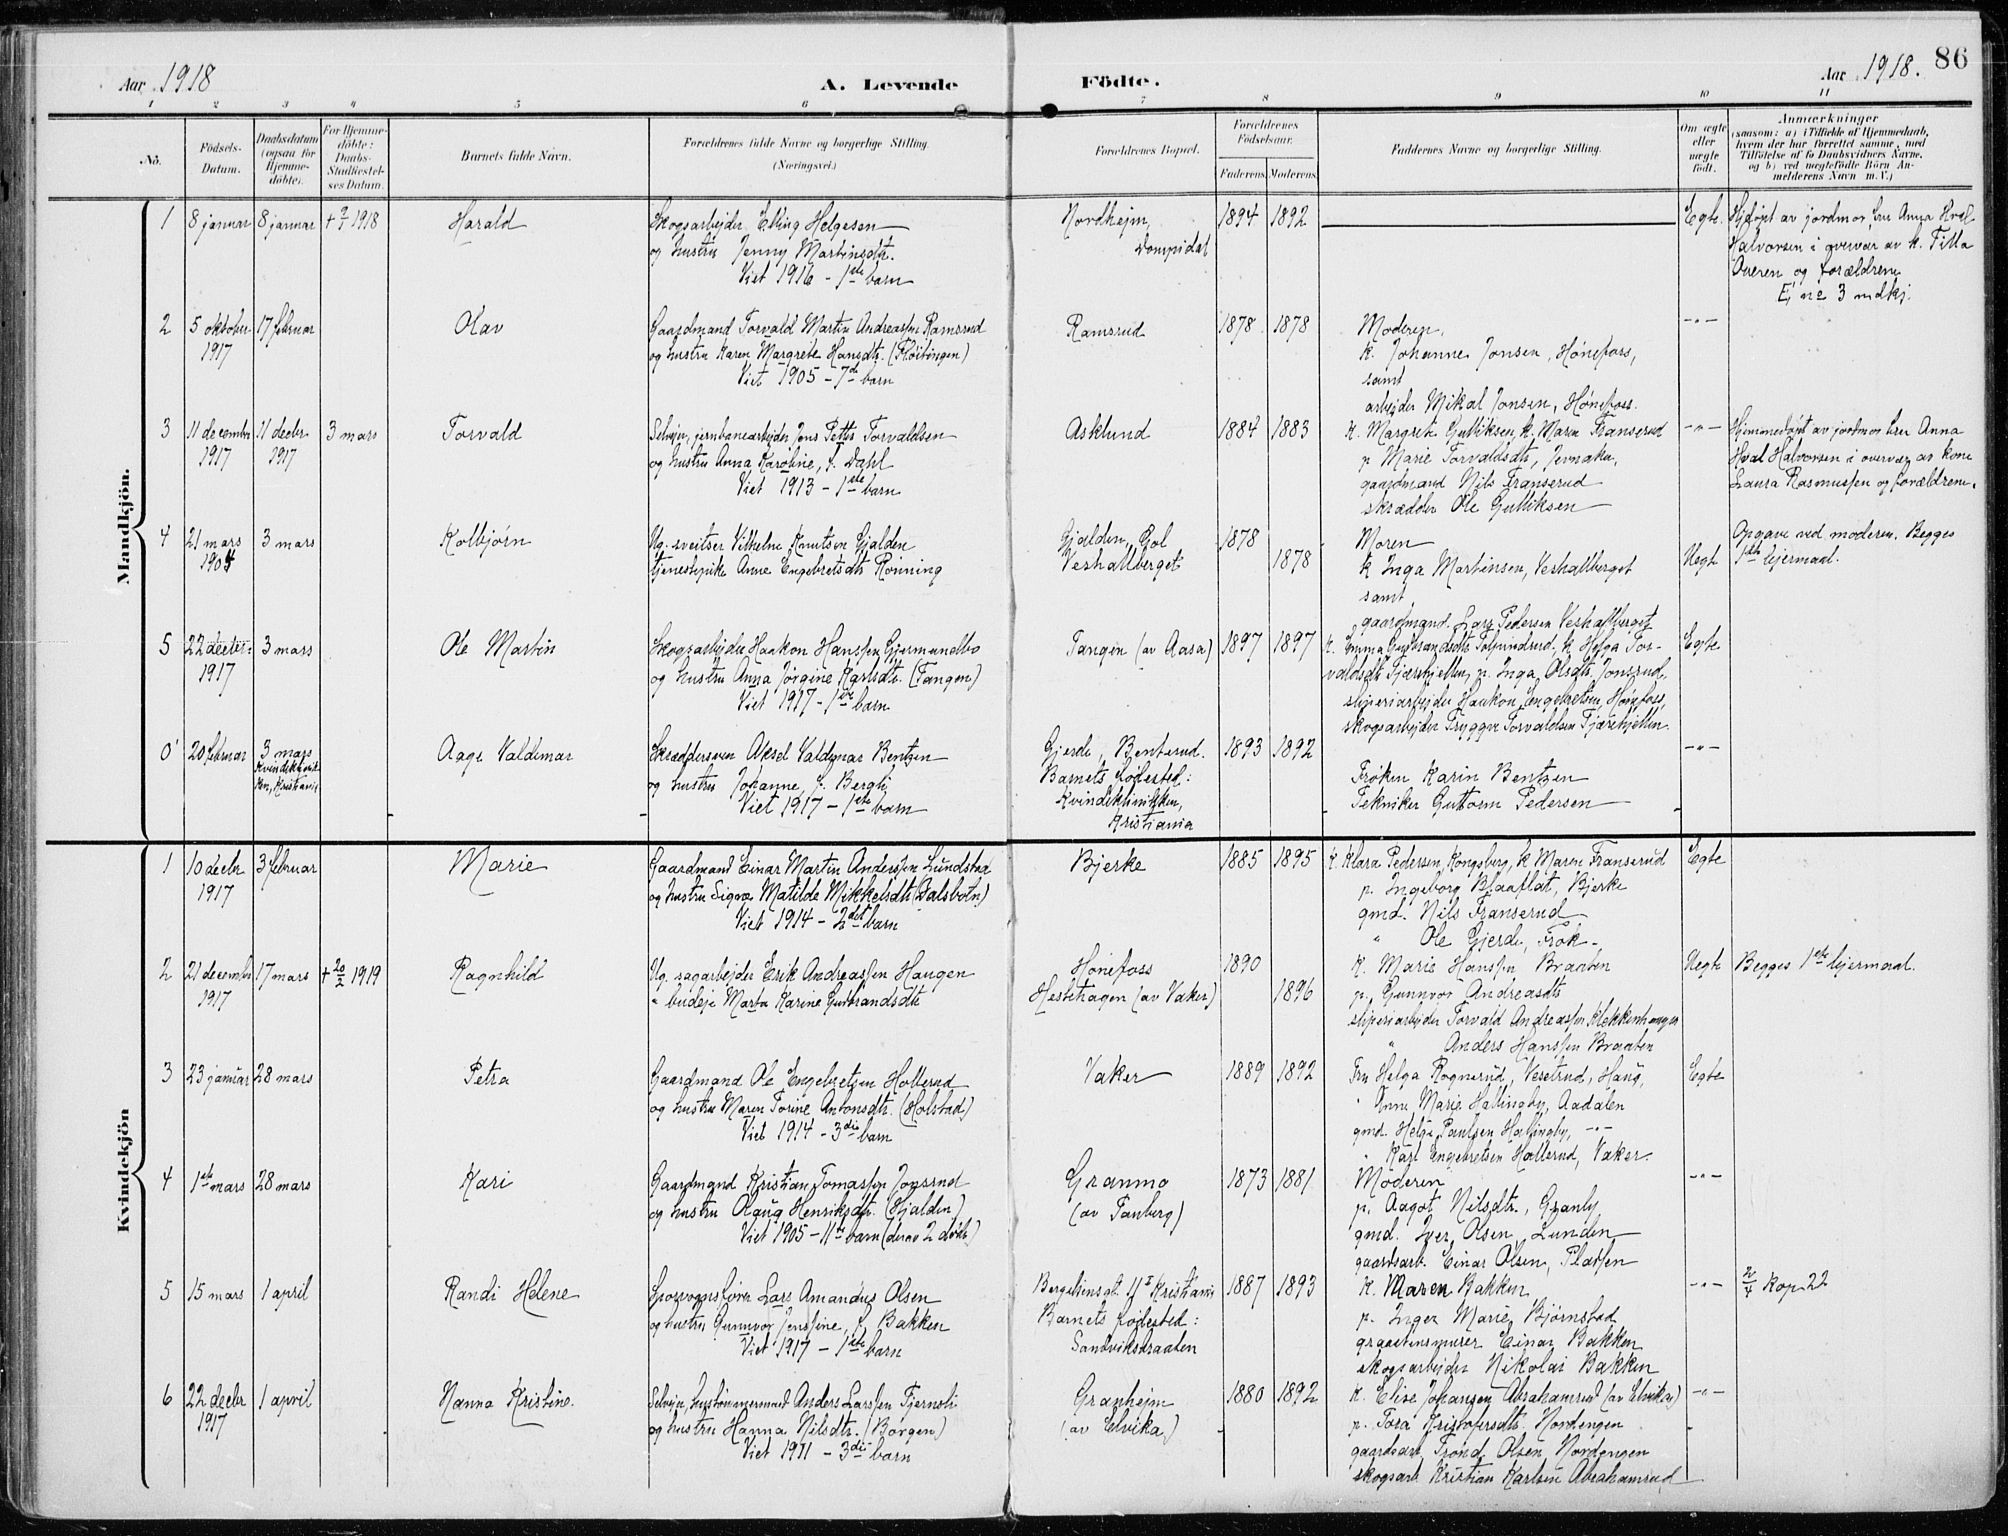 Aar 1918
A. Levende
Födte.
Aar 1918.
86
1 2 3 4 5 6 7 8 9 10 11
No.
Födsels-
Datum.
Daabsdatum
(ogsaa for
Hjemme-
döbte).
For Hjemme-
döbte:
Daabs-
Stadfæstel-
ses Datum.
Barnets fulde Navn.
Forældrenes fulde Navne og borgerlige Stilling.
(Næringsvei.)
Forældrenes Bopæl.
Forældrenes
Födselsaar.
Faderens. Moderens.
Faddernes Navne og borgerlige Stilling.
Om ægte
eller
uægte
födt.
Anmærkninger
(saasom: a) i Tilfælde af Hjemmedaab,
hvem der har forrettet samme, med
Tilföielse af to Daabsvidners Navne,
og b) ved uægtefödte Börn An-
melderens Navn m. V.)
Mandkjön.
1 8 januar 8 januar + 9/1 1918 Harald
Skogsarbejder Elling Helgesen
og hustru Jenny Martinsdtr.
Viet 1916 - 1ste barn
Nordhejm
1894 1892
Egte.
Hjdøpt av jordmor fru Anna Hval
Halvorsen i overvær av k. Tilla
Overen og forældrene
Ej no 3 mdkj.
2 5 oktober 17 februar Olav
1917
Gaardmand Torvald Martin Andreassen Ramsrud
og hustru Karen Margrete Hansdtr. (Fløitingen)
Viet 1905 - 7de barn
Ramsrud
1878 1878
Moderen.
k. Johanne Jonsen, Hønefoss,
samt
arbejder Mikal Jonsen, Hønefoss.
-"-
3 11 decembr 11 decbr 3 mars Torvald
1917 1917
Selvejer, jernbanearbejder Jens Petter Torvaldsen
og hustru Anna Karoline, f. Dahl
Viet 1913 - 1ste barn
Asklund
1884 1883
k. Margrete Gulliksen, k. Maren Franserud
p. Marie Torvaldsdtr, Jevnaker,
gaardmand Nils Franserud
skrædder Ole Gulliksen
-"-
Hjemmedøpt av jordmor fru Anna
Hval Halvorsen i overvær av kone
Laura Rasmussen og forældrene.
4 21 mars 3 mars Kolbjørn
1904
Ug. sveitser Vilhelm Knutsen Gjalden
tjenestepike Anne Engebretsdtr Rønning
Gjalden, Gol
Veshallberget
1878
1878
Moren
k Inga Martinsen, Veshallberget
samt
gaardmand. Lars Pedersen Veshallberget
Uegte
Opgave ved moderen. Begges
1ste lejermaal.
5 22 decbr. 3 mars Ole Martin
1917
Skogsarbejder Haakon Hanssen Gjermundbo
og hustru Anna Jørgine Karlsdtr. (Tangen)
Viet 1917 - 1ste barn
Tangen (av Aasa)
1897 1897
k. Emma Gudbrandsdtr k Helga Tor-
valdsdtr Tjærehjellen, p. Inga Olsdtr. Jonsrud,
sliperiarbejder Haakon Engebretsen, Hønefoss,
skogsarbejder Trygve Torvaldsen Tjærehjellen.
Egte
0' 20 februar 3 mars Aage Valdemar
Kvindeklinik-
ken, Kristiania
Skræddersven Aksel Valdemar Bentzen
og hustru Johanne, f. Bergli
Viet 1917 - 1ste barn
Gjerde, Benterud.
Barnets fødested:
Kvindeklinikken,
Kristiania
1893 1892
Frøken Karin Bentzen
Tekniker Guttorm Pedersen
-"-
Kvindekjön
1 10 decbr 3 februar Marie
1917
Gaardmand Einar Martin Anderssen Lundstad
og hustru Signe Matilde Mikkelsdtr (Dalsbotn)
Viet 1914 - 2det barn
Bjerke
1885 1895
k. Klara Pedersen, Kongsberg, k Maren Franserud
p. Ingeborg Blaaflat, Bjerke
gmd. Nils Franserud
" Ole Gjerde, Frøk-
Egte
2 21 december 17 mars + 20/2 1919 Ragnhild
1917
Ug. sagarbejder Erik Andreassen Haugen
" budeje Marta Karine Gudbrandsdtr
Hønefoss
Hestehagen (av Vaker)
1890
1896
k. Marie Hanssen Braaten
p. Gunnvor Andreasdtr
sliperiarbejder Torvald Andreassen Klekkenhaugen
" Anders Hanssen Braaten
Uegte
Begges 1ste lejermaal.
3 23 januar 28 mars Petra
Gaardmand Ole Engebretsen Hollerud
og hustru Maren Torine Antonsdtr. (Holstad)
Viet 1914 - 3die barn
Vaker
1889 1892
Fru Helga Rognerud, Vesetrud, Haug,
" Anne Marie Hallingby, Aadalen
gmd. Helge Paulsen Hallingby, -"-
" Karl Engebretsen Hollerud, Vaker.
Egte
4 1ste mars 28 mars Kari
Gaardmand Kristian Tomassen Jonsrud
og hustru Olaug Henriksdtr. (Gjalden)
Viet 1905 - 11te barn (derav 2 døde)
Granmo
(av Tanberg)
1873 1881
Moderen
p. Aagot Nilsdtr., Granly
gmd. Iver Olsen Lunden
gaardsarb. Einar Olsen, Plassen
-"-
5 15 mars 1 april Randi Helene
Sporvognsfører Lars Amandus Olsen
og hustru Gunnvor Jenssine, f. Bakken
Viet 1917 - 1ste barn
Kristiania
Barnets fødested:
Sandviksbraaten
1887 1893
k. Maren Bakken
p. Inger Marie Bjørnstad
graastensmurer Einar Bakken
skogsarbejder Nikolai Bakken
-"-
2/4 kop 22
6 22 decbr 1 april Hanna Kristine.
1917
Selvejer, hustømmermand Anders Larssen Tjernsli
og hustru Hanna Nilsdtr. (Borgen)
Viet 1911 - 3die barn
Granhejm
(av Elvika)
1880 1892
k. Elise Johansen Abrahamrud (av Elvika)
p. Tora Kristofersdtr. Nordengen
gaardsarb. Trond Olsen Nordengen
skogsarb. Kristian Karlsen Abrahamrud
-"-